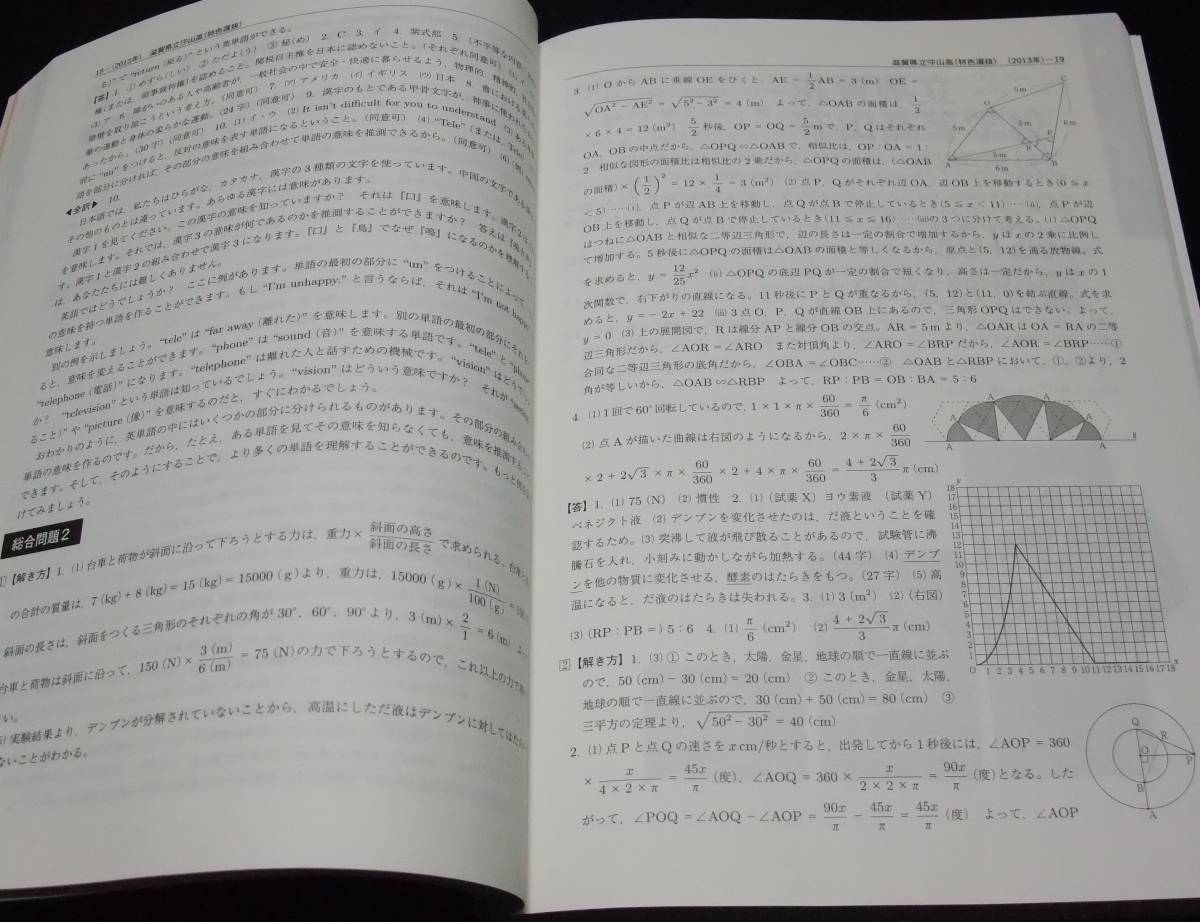 18－(2013年) 滋賀県立守山高(特色選抜)
る)”で“return (戻る)”という英単語ができる。
【答】1. ① めずら(しい) ② ただよ(う) ③ 秘(め) 2. C 3. イ 4. 紫式部 5. (不平等な内容)
権(または、領事裁判権)を認めること。関税自主権を日本に認めないこと。(それぞれ同意可)
(3) ア 6. 障がいのある人や高齢者が、一般社会の中で安全・快適に暮らせるよう、物理的、精神的
障壁を取り除こうという考え方。(同意可) 7. (ア) アメリカ (イ) イギリス (ウ) 日本 8.
筆の運動と身体の柔らかな運動。(24字)(同意可) 9. 漢字のもとである甲骨文字が、神事に使われ
あったから。(30字)(同意可) 10. (1) イ・ウ (2) It isn't difficult for you to understand (3)
前に“un”をつけると、反対の意味を表す単語になるということ。(同意可) (4) “Tele”(または、Tele)
語を部分に分ければ、その部分の意味を組み合わせて単語の意味を推測できるから。(同意可)
◀全訳▶ 10.
日本語では、私たちはひらがな、カタカナ、漢字の3種類の文字を使っています。中国の文字である
その他のものとは違っています。あらゆる漢字には意味があります。
漢字1を見てください。この漢字の意味を知っていますか? それは『口』を意味します。漢字2は
を意味します。それでは、漢字3の意味が何であるのかを推測することができますか? 答えは『鳴き
す。漢字1と漢字2の組み合わせで漢字3になります。『口』と『鳥』でなぜ『鳴』になるのかを理解する
は、あなたたちには難しくありません。
英語ではどうでしょうか? ここに例があります。単語の最初の部分に“un”をつけることによって、
の意味を持つ単語を作ることができます。もし“I'm unhappy.”と言うならば、それは“I'm not happy
意味します。
別の例を示しましょう。“tele”は“far away (離れた)”を意味します。別の単語の最初の部分にそれを
ると、意味を変えることができます。“phone”は“sound (音)”を意味する単語です。“tele”と“phone
“telephone (電話)”になります。“telephone”は離れた人と話すための機械です。“vision”はどうで
か? “television”という単語は知っているでしょう。“vision”はどういう意味ですか? それが“seeing
ること)”や“picture (像)”を意味するのだと、すぐにわかるでしょう。
おわかりのように、英単語の中にはいくつかの部分に分けられるものがあります。その部分の組み合わ
単語の意味を作るのです。だから、たとえ、ある単語を見てその意味を知らなくても、意味を推測する
できます。そして、そのようにすることで、より多くの単語を理解することができるのです。もっと
けてみましょう。
総合問題2
1【解き方】1. (1) 台車と荷物が斜面に沿って下ろうとする力は、重力×斜面の高さ/斜面の長さ で求められる。台車
の合計の質量は、7 (kg)＋8 (kg)＝15 (kg)＝15000 (g) より、重力は、15000 (g)×1 (N)/100 (g)＝150
斜面の長さは、斜面をつくる三角形のそれぞれの角が30°、60°、90°より、3 (m)×2/1＝6 (m) よっ
台車と荷物は斜面に沿って、150 (N)×3 (m)/6 (m)＝75 (N) の力で下ろうとするので、これ以上の力で
い。
5) 実験結果より、デンプンが分解されていないことから、高温にしただ液はデンプンに対して
ないことがわかる。
滋賀県立守山高(特色選抜) (2013年)－19
3. (1) OからABに垂線OEをひくと、AE＝1/2AB＝3 (m) OE＝
√(OA²－AE²)＝√(5²－3²)＝4 (m) よって、△OABの面積は、1/2
×6×4＝12 (m²) 5/2秒後、OP＝OQ＝5/2mで、P、Qはそれぞれ
OA、OBの中点だから、△OPQ∽△OABで、相似比は、OP：OA＝1：
2 相似な図形の面積比は相似比の2乗だから、△OPQの面積は、(△OAB
の面積)×(1/2)²＝12×1/4＝3 (m²) (2) 点P、Qがそれぞれ辺OA、辺OB上を移動するとき(0≦x
＜5)……(i)、点Pが辺AB上を移動し、点Qが点Bで停止しているとき(5≦x＜11)……(ii)、点Pが辺
OB上を移動し、点Qが点Bで停止しているとき(11≦x≦16)……(iii)の3つに分けて考える。(i) △OPQ
はつねに△OABと相似な二等辺三角形で、辺の長さは一定の割合で増加するから、yはxの2乗に比例し
て増加する。5秒後に△OPQの面積は△OABの面積と等しくなるから、原点と(5、12)を通る放物線。式
を求めると、y＝12/25x² (ii) △OPQの底辺PQが一定の割合で短くなり、高さは一定だから、yはxの1
次関数で、右下がりの直線になる。11秒後にPとQが重なるから、(5、12)と(11、0)を結ぶ直線。式を求
めると、y＝－2x＋22 (iii) 3点O、P、Qが直線OB上にあるので、三角形OPQはできない。よって、
y＝0 (3) 上の展開図で、Rは線分APと線分OBの交点。AR＝5mより、△OARはOA＝RAの二等
辺三角形だから、∠AOR＝∠ARO また対頂角より、∠ARO＝∠BRPだから、∠AOR＝∠BRP……①
合同な二等辺三角形の底角だから、∠OBA＝∠OBC……② △OABと△RBPにおいて、①、②より、2
角が等しいから、△OAB∽△RBP よって、RP：PB＝OB：BA＝5：6
4. (1) 1回で60°回転しているので、1×1×π×60/360＝π/6 (cm²)
(2) 点Aが描いた曲線は右図のようになるから、2×π×60/360
×2＋2√3×π×60/360×2＋4×π×60/360＝(4＋2√3)/3 π (cm)
【答】1. (1) 75 (N) (2) 慣性 2. (1) (試薬X) ヨウ素液 (試薬Y)
ベネジクト液 (2) デンプンを変化させたのは、だ液ということを確
認するため。(3) 突沸して液が飛び散ることがあるので、試験管に沸
騰石を入れ、小刻みに動かしながら加熱する。(44字) (4) デンプ
ンを他の物質に変化させる、酵素のはたらきをもつ。(27字) (5) 高
温になると、だ液のはたらきは失われる。3. (1) 3 (m²) (2) (右図)
(3) (RP：PB＝) 5：6 4. (1) π/6 (cm²) (2) (4＋2√3)/3 π (cm)
2【解き方】1. (3) ① このとき、太陽、金星、地球の順で一直線に並ぶ
ので、50 (cm)－30 (cm)＝20 (cm) ② このとき、金星、太陽、
地球の順で一直線に並ぶので、30 (cm)＋50 (cm)＝80 (cm) ③
三平方の定理より、√(50²－30²)＝40 (cm)
2. (1) 点Pと点Qの速さをx cm/秒とすると、出発してから1秒後には、∠AOP＝360
×x/(4×2×π)＝45x/π (度)、∠AOQ＝360×x/(2×2×π)＝90x/π (度)となる。した
がって、∠POQ＝∠AOQ－∠AOP＝90x/π－45x/π＝45x/π (度) よって、∠AOP
O
C
5m
5m
6m
P
R
5m
A
6m
B
A
A
A
A
ℓ
y
18
17
16
15
14
13
12
11
10
9
8
7
6
5
4
3
2
1
O 1 2 3 4 5 6 7 8 9 10 11 12 13 14 15 16 17 18 x
Q
R
O
P
B
A